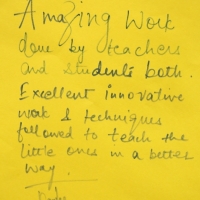 Amazing Work
done by teachers
and students both.
Excellent innovative
work & techniques
followed to teach the
little ones in a better
way.